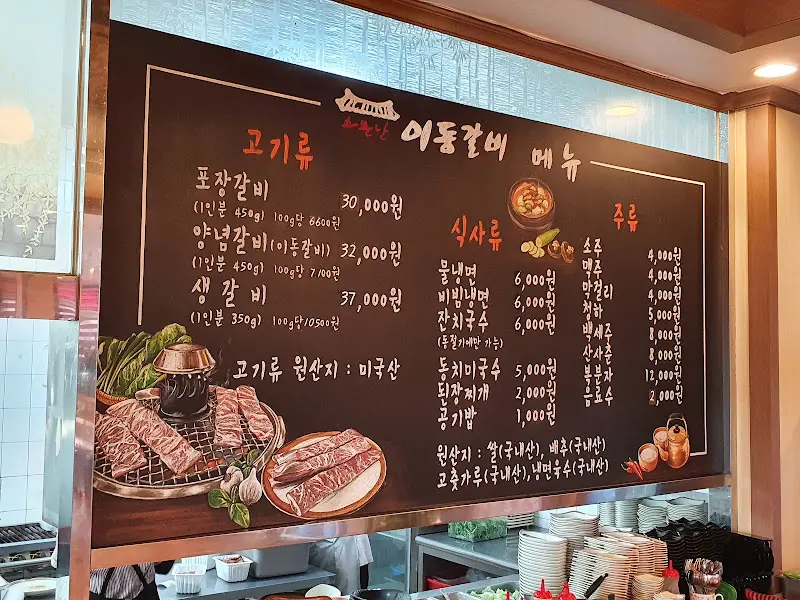 소문난 이동갈비 메뉴
고기류
포장갈비 30,000원
(1인분 450g) 100g당 6600원
양념갈비(이동갈비) 32,000원
(1인분 450g) 100g당 7100원
생갈비 37,000원
(1인분 350g) 100g당10500원
고기류 원산지 : 미국산
식사류
물냉면 6,000원
비빔냉면 6,000원
잔치국수 6,000원
(동절기에만 가능)
동치미국수 5,000원
된장찌개 2,000원
공기밥 1,000원
주류
소주 4,000원
맥주 4,000원
막걸리 4,000원
청하 5,000원
백세주 8,000원
산사춘 8,000원
복분자 12,000원
음료수 2,000원
원산지 : 쌀(국내산), 배추(국내산)
고춧가루(국내산),냉면육수(국내산)